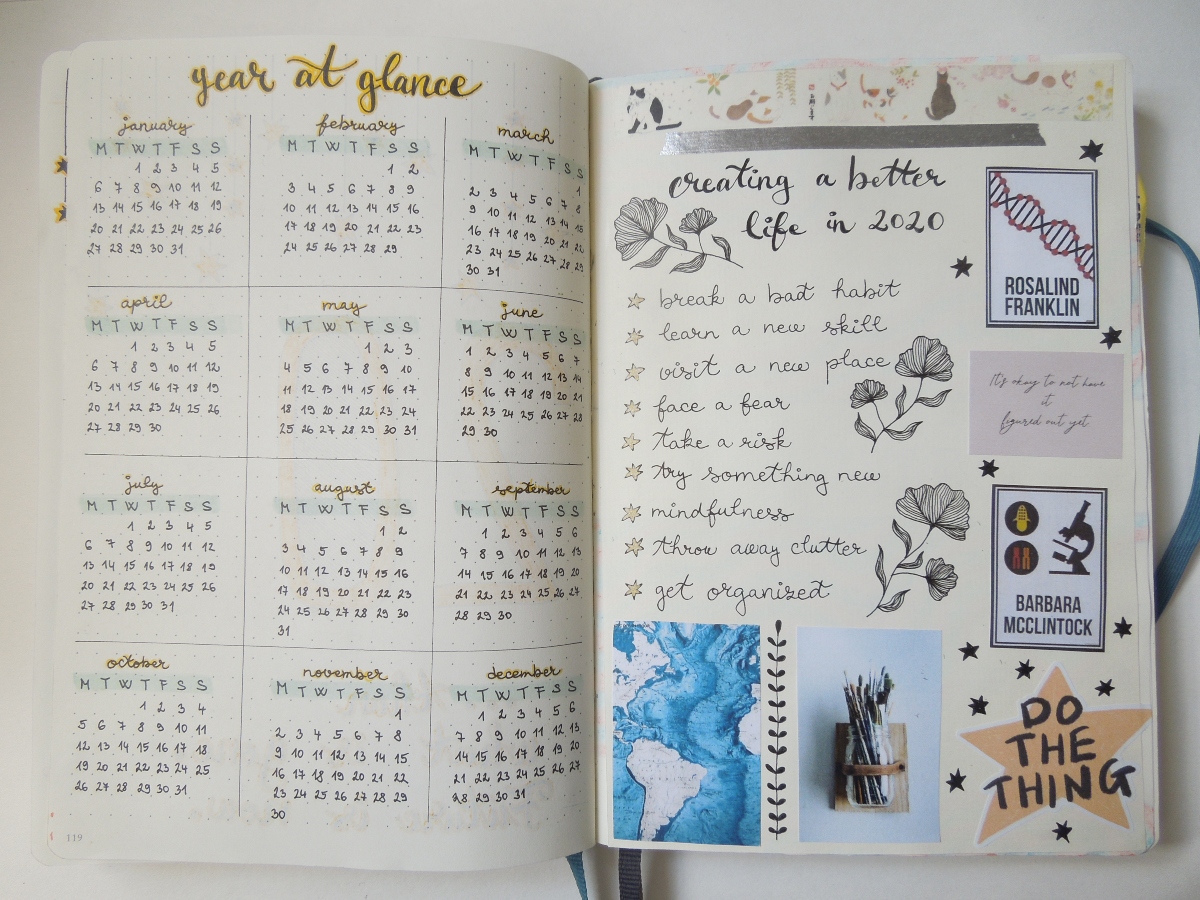 year at glance
january
M T W T F S S
1 2 3 4 5
6 7 8 9 10 11 12
13 14 15 16 17 18 19
20 21 22 23 24 25 26
27 28 29 30 31
february
M T W T F S S
1 2
3 4 5 6 7 8 9
10 11 12 13 14 15 16
17 18 19 20 21 22 23
24 25 26 27 28 29
march
M T W T F S S
1
2 3 4 5 6 7 8
9 10 11 12 13 14 15
16 17 18 19 20 21 22
23 24 25 26 27 28 29
30 31
april
M T W T F S S
1 2 3 4 5
6 7 8 9 10 11 12
13 14 15 16 17 18 19
20 21 22 23 24 25 26
27 28 29 30
may
M T W T F S S
1 2 3
4 5 6 7 8 9 10
11 12 13 14 15 16 17
18 19 20 21 22 23 24
25 26 27 28 29 30 31
june
M T W T F S S
1 2 3 4 5 6 7
8 9 10 11 12 13 14
15 16 17 18 19 20 21
22 23 24 25 26 27 28
29 30
july
M T W T F S S
1 2 3 4 5
6 7 8 9 10 11 12
13 14 15 16 17 18 19
20 21 22 23 24 25 26
27 28 29 30 31
august
M T W T F S S
1 2
3 4 5 6 7 8 9
10 11 12 13 14 15 16
17 18 19 20 21 22 23
24 25 26 27 28 29 30
31
september
M T W T F S S
1 2 3 4 5 6
7 8 9 10 11 12 13
14 15 16 17 18 19 20
21 22 23 24 25 26 27
28 29 30
october
M T W T F S S
1 2 3 4
5 6 7 8 9 10 11
12 13 14 15 16 17 18
19 20 21 22 23 24 25
26 27 28 29 30 31
november
M T W T F S S
1
2 3 4 5 6 7 8
9 10 11 12 13 14 15
16 17 18 19 20 21 22
23 24 25 26 27 28 29
30
december
M T W T F S S
1 2 3 4 5 6
7 8 9 10 11 12 13
14 15 16 17 18 19 20
21 22 23 24 25 26 27
28 29 30 31
119
creating a better
life in 2020
break a bad habit
learn a new skill
visit a new place
face a fear
take a risk
try something new
mindfulness
throw away clutter
get organized
ROSALIND
FRANKLIN
It's okay to not have
it
figured out yet
BARBARA
MCCLINTOCK
DO
THE
THING